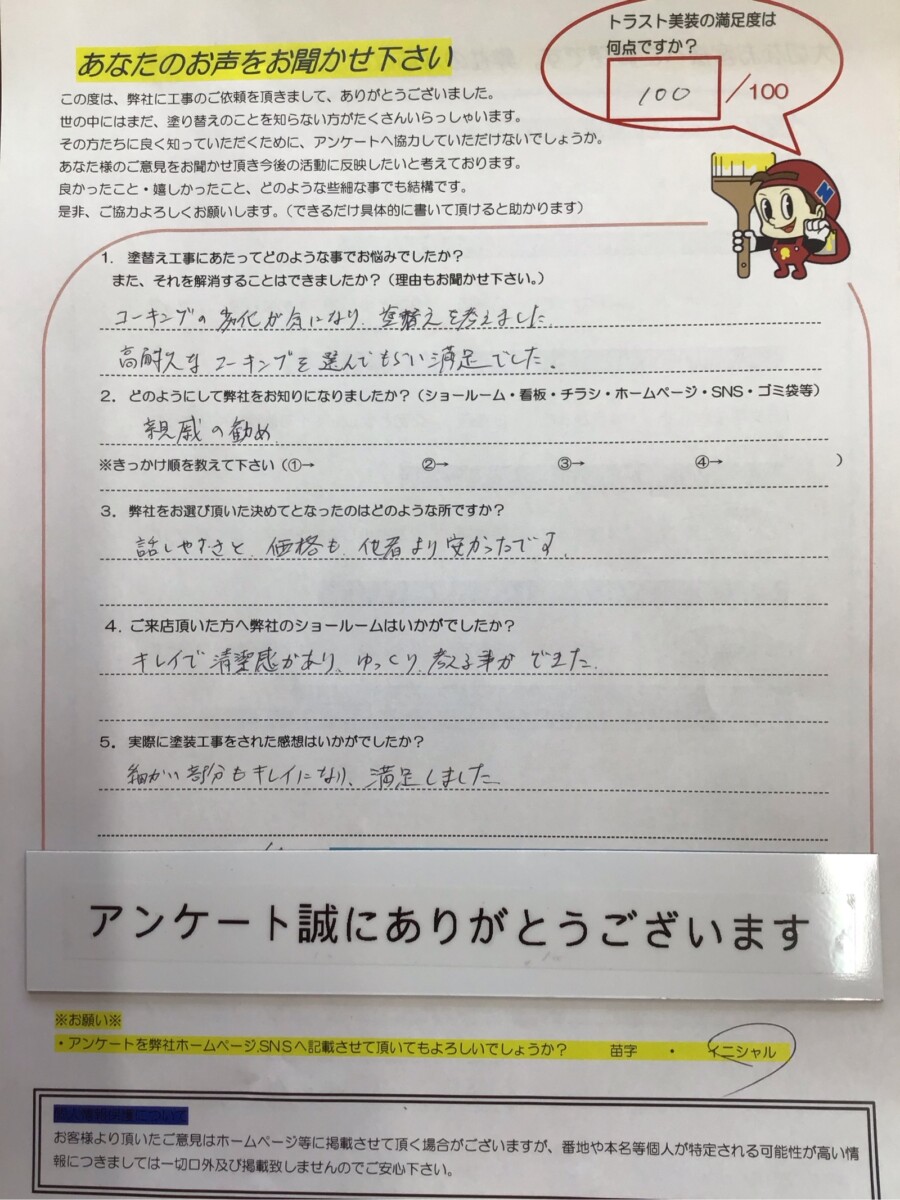 あなたのお声をお聞かせ下さい
トラスト美装の満足度は
何点ですか？
100 /100
この度は、弊社に工事のご依頼を頂きまして、ありがとうございました。
世の中にはまだ、塗り替えのことを知らない方がたくさんいらっしゃいます。
その方たちに良く知っていただくために、アンケートへ協力していただけないでしょうか。
あなた様のご意見をお聞かせ頂き今後の活動に反映したいと考えております。
良かったこと・嬉しかったこと、どのような些細な事でも結構です。
是非、ご協力よろしくお願いします。（できるだけ具体的に書いて頂けると助かります）
N
1. 塗替え工事にあたってどのような事でお悩みでしたか？
また、それを解消することはできましたか？（理由もお聞かせ下さい。）
コーキングの劣化が気になり、塗替えを考えました。
高耐久なコーキングを選んでもらい満足でした。
2. どのようにして弊社をお知りになりましたか？（ショールーム・看板・チラシ・ホームページ・SNS・ゴミ袋等）
親戚の勧め
※きっかけ順を教えて下さい（①→ ②→ ③→ ④→ ）
3. 弊社をお選び頂いた決めてとなったのはどのような所ですか？
話しやすさと、価格も、他者より安かったです。
4. ご来店頂いた方へ弊社のショールームはいかがでしたか？
キレイで清潔感があり、ゆっくり、考える事ができた。
5. 実際に塗装工事をされた感想はいかがでしたか？
細かい部分もキレイになり、満足しました
アンケート誠にありがとうございます
※お願い※
・アンケートを弊社ホームページ.SNSへ記載させて頂いてもよろしいでしょうか？ 苗字 ・ イニシャル
個人情報保護について
お客様より頂いたご意見はホームページ等に掲載させて頂く場合がございますが、番地や本名等個人が特定される可能性が高い情
報につきましては一切口外及び掲載致しませんのでご安心下さい。